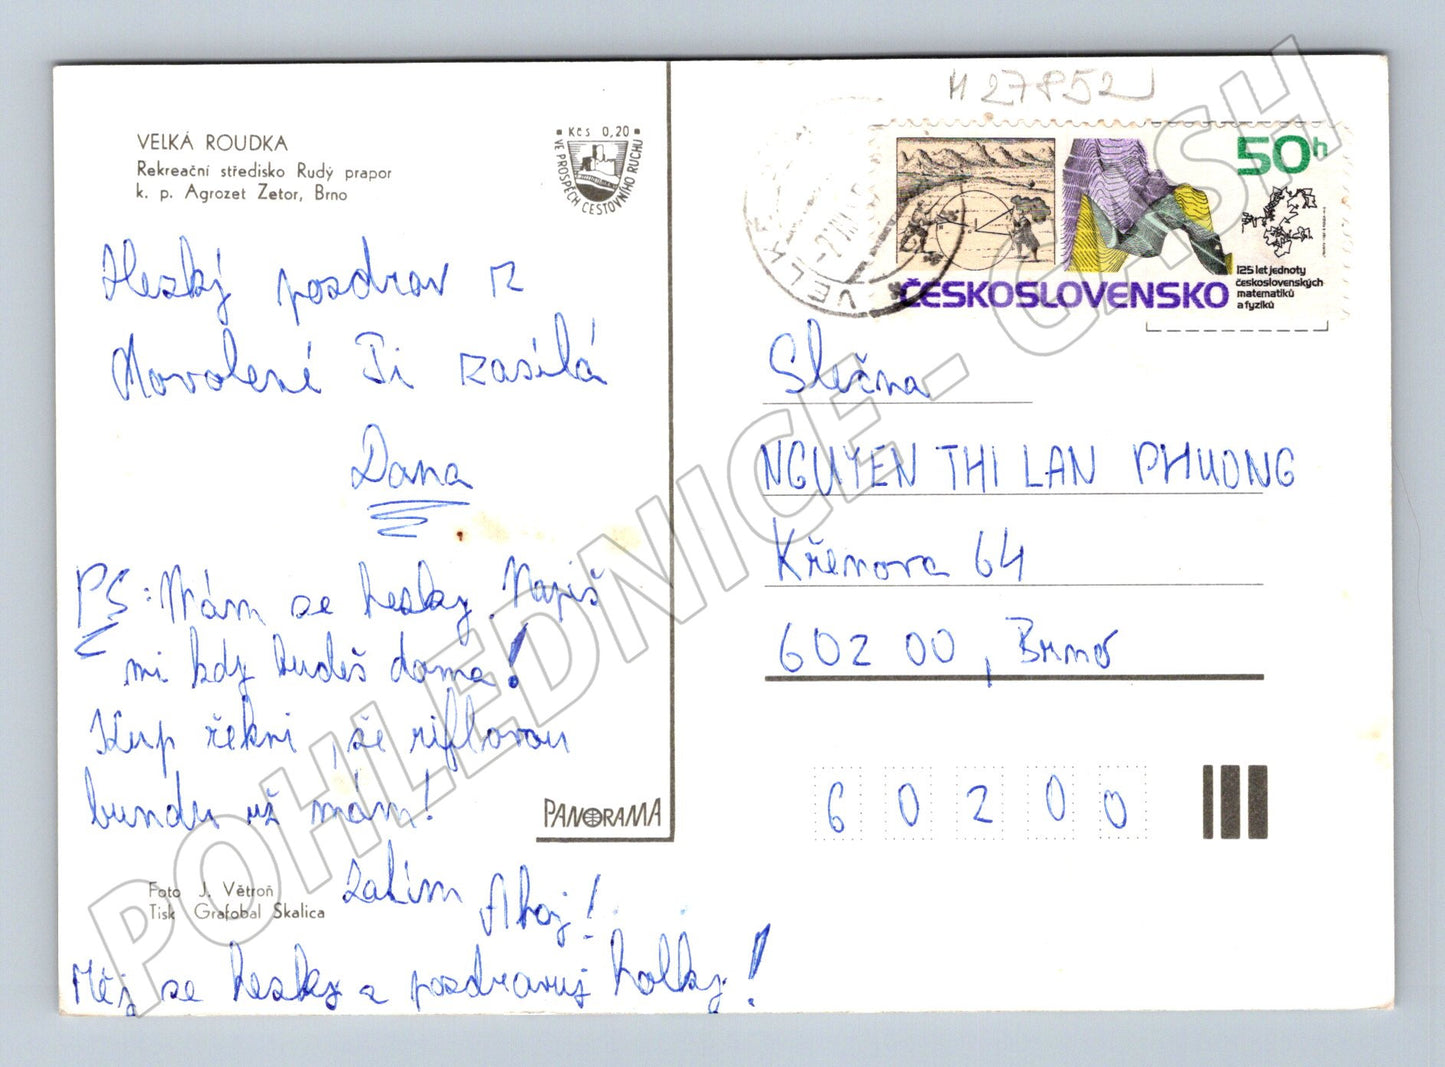 VELKÁ ROUDKA
Rekreační středisko Rudý prapor
k. p. Agrozet Zetor, Brno
Kčs 0,20
VE PROSPĚCH CESTOVNÍHO RUCHU
Hezký pozdrav z
dovolené Ti zasílá
Dana
PS: Mám se hezky. Napiš
mi kdy budeš doma!
řekni, že riflovou
bundu už mám!
zatím Ahoj!
Měj se hezky a pozdravuj holky!
Foto J. Větroň
Tisk Grafobal Skalica
PANORAMA
M 27852
VELKÉ
50h
125 let jednoty
československých
matematiků
a fyziků
ČESKOSLOVENSKO
Slečna
NGUYEN THI LAN PHUONG
Křenova 64
602 00, Brno
6 0 2 0 0
POHLEDNICE - CASH